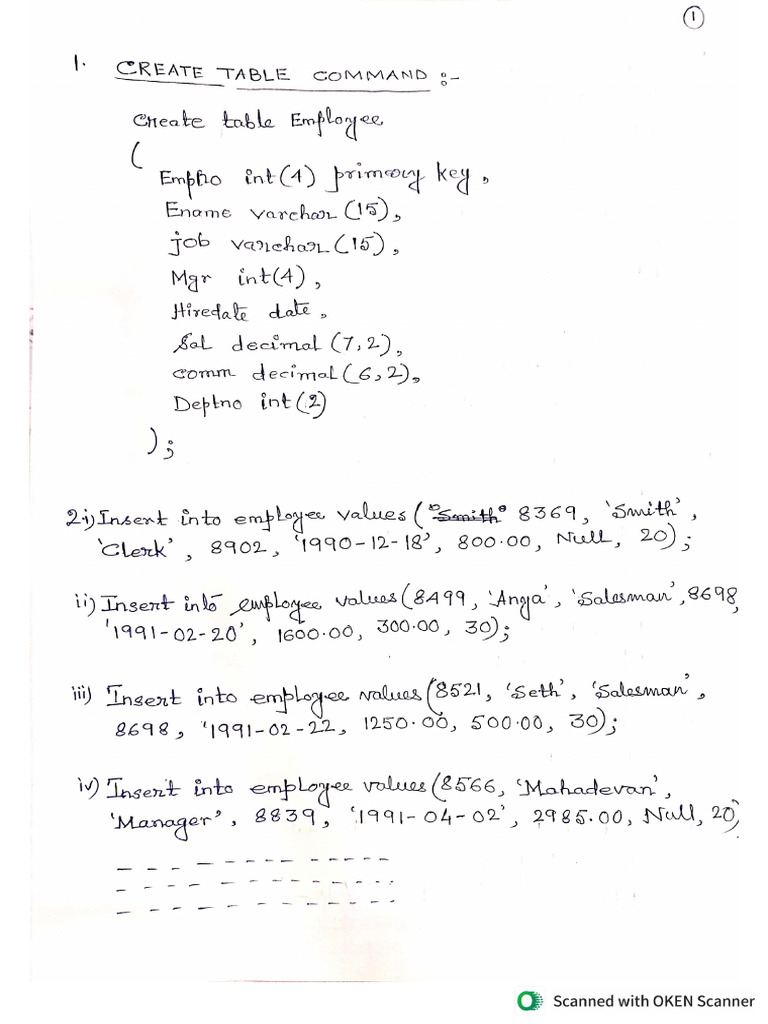 1
1. CREATE TABLE COMMAND :-
Create table Employee
(
Empno int(4) primary key,
Ename varchar(15),
job varchar(15),
Mgr int(4),
Hiredate date,
Sal decimal(7,2),
comm decimal(6,2),
Deptno int(2)
);
2.i) Insert into employee values ("Smith" 8369, 'Smith',
'Clerk', 8902, '1990-12-18', 800.00, Null, 20);
ii) Insert into employee values(8499, 'Anya', 'Salesman', 8698,
'1991-02-20', 1600.00, 300.00, 30);
iii) Insert into employee values(8521, 'Seth', 'Salesman',
8698, '1991-02-22, 1250.00, 500.00, 30);
iv) Insert into employee values(8566, 'Mahadevan',
'Manager', 8839, '1991-04-02', 2985.00, Null, 20)
Scanned with OKEN Scanner